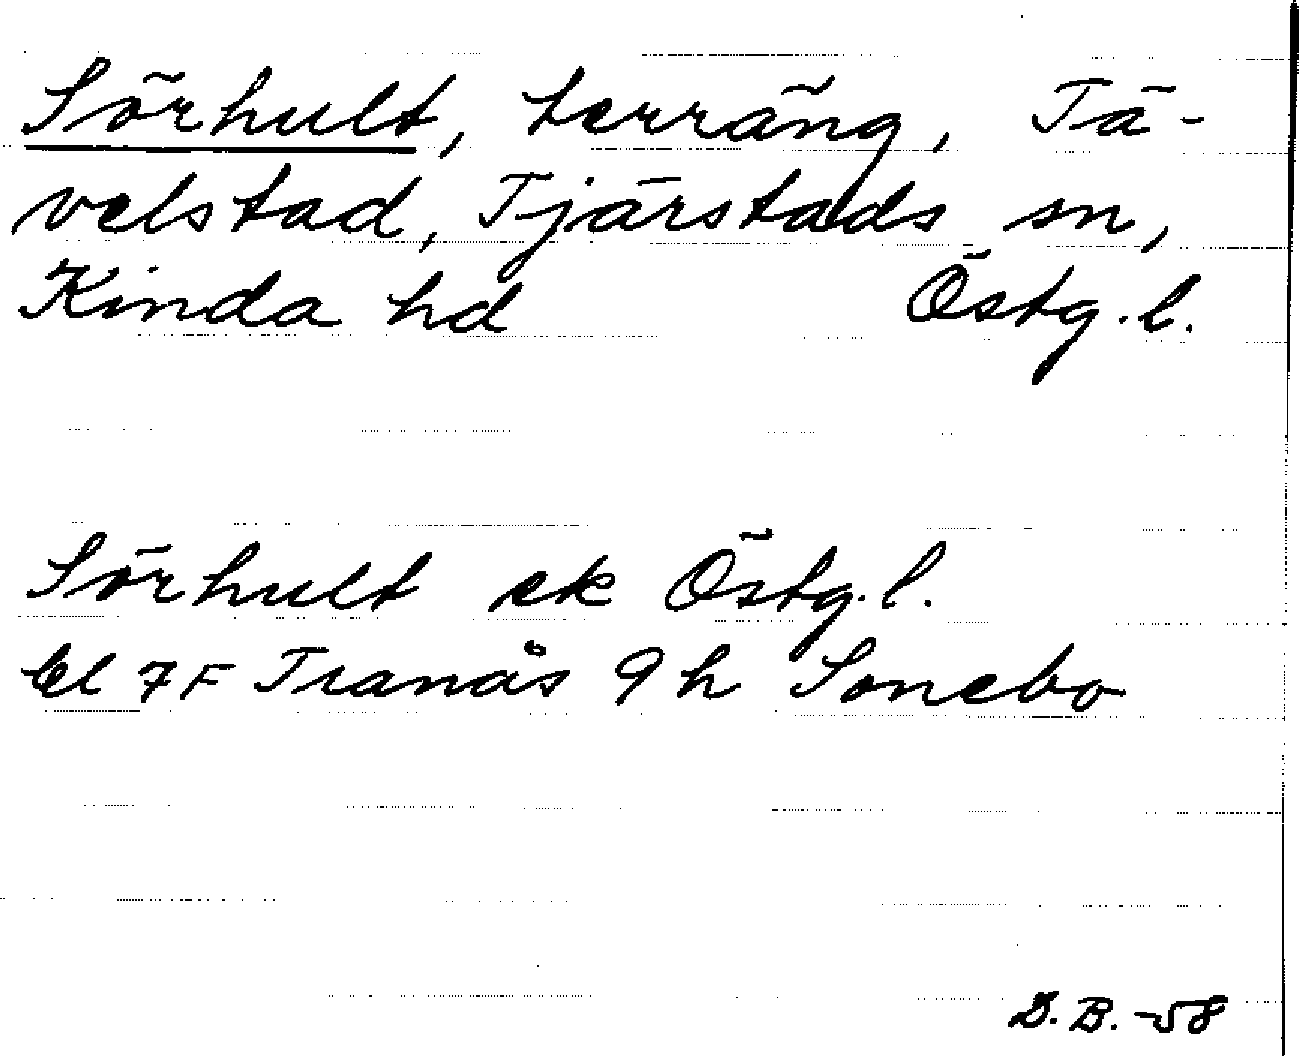 Sörhult, terräng, Tä-
velstad, Tjärstads sn,
Kinda hd Östg. l.
Sörhult ek Östg. l.
bl 7F Tranås 9h Sonebo
D.B. -58